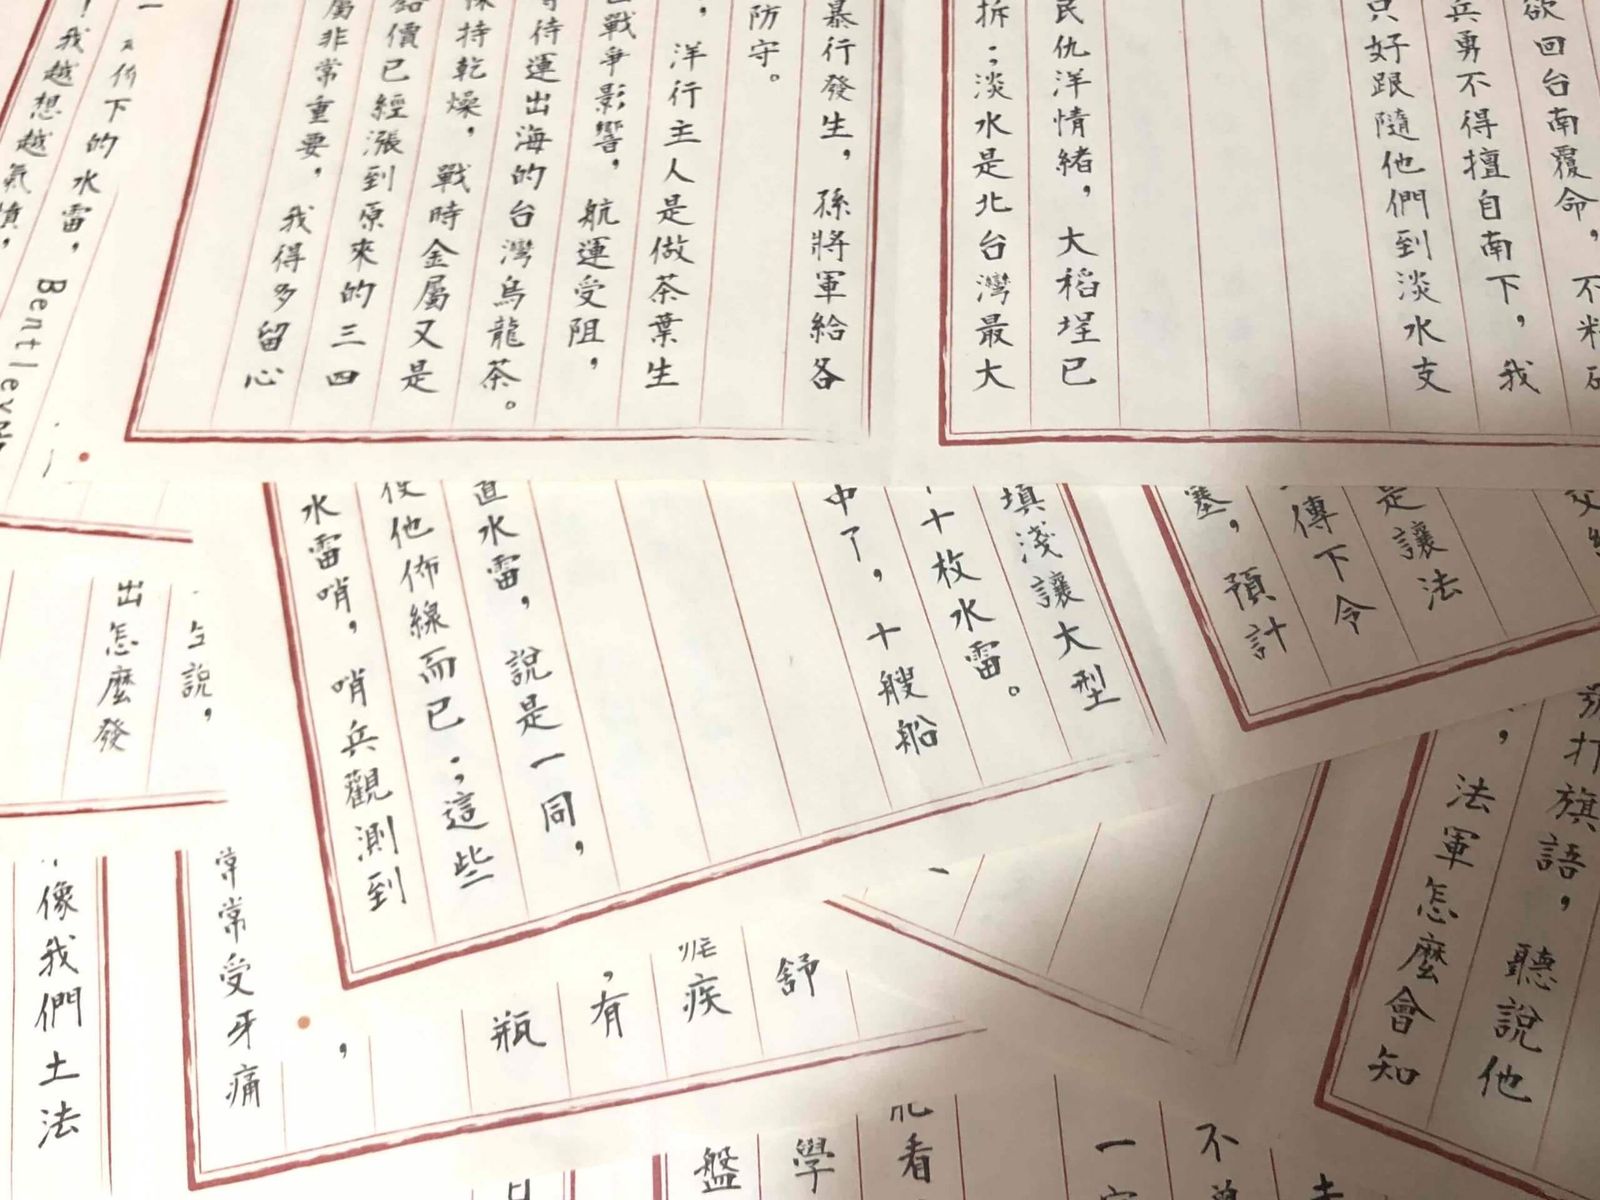 欲回台南覆命，不料
兵勇不得擅自南下，我
只好跟隨他們到淡水支
民仇洋情緒，大稻埕已
拆；淡水是北台灣最大
暴行發生，孫將軍給各
防守。
，洋行主人是做茶葉生
戰爭影響，航運受阻，
待運出海的台灣烏龍茶。
持乾燥，戰時金屬又是
價已經漲到原來的三四
屬非常重要，我得多留心
下的水雷，
！我越想越氣憤，
Bentley
交
是讓法
傳下令
塞，預計
填淺讓大型
十枚水雷。
中了，十艘船
直水雷，說是一同，
使他佈線而已；這些
水雷哨，哨兵觀測到
說，
出怎麼發
打旗語，聽說他
，法軍怎麼會知
舒
疾
，有
瓶
，
常常受牙痛
像我們土法
不
一
看
學
盤